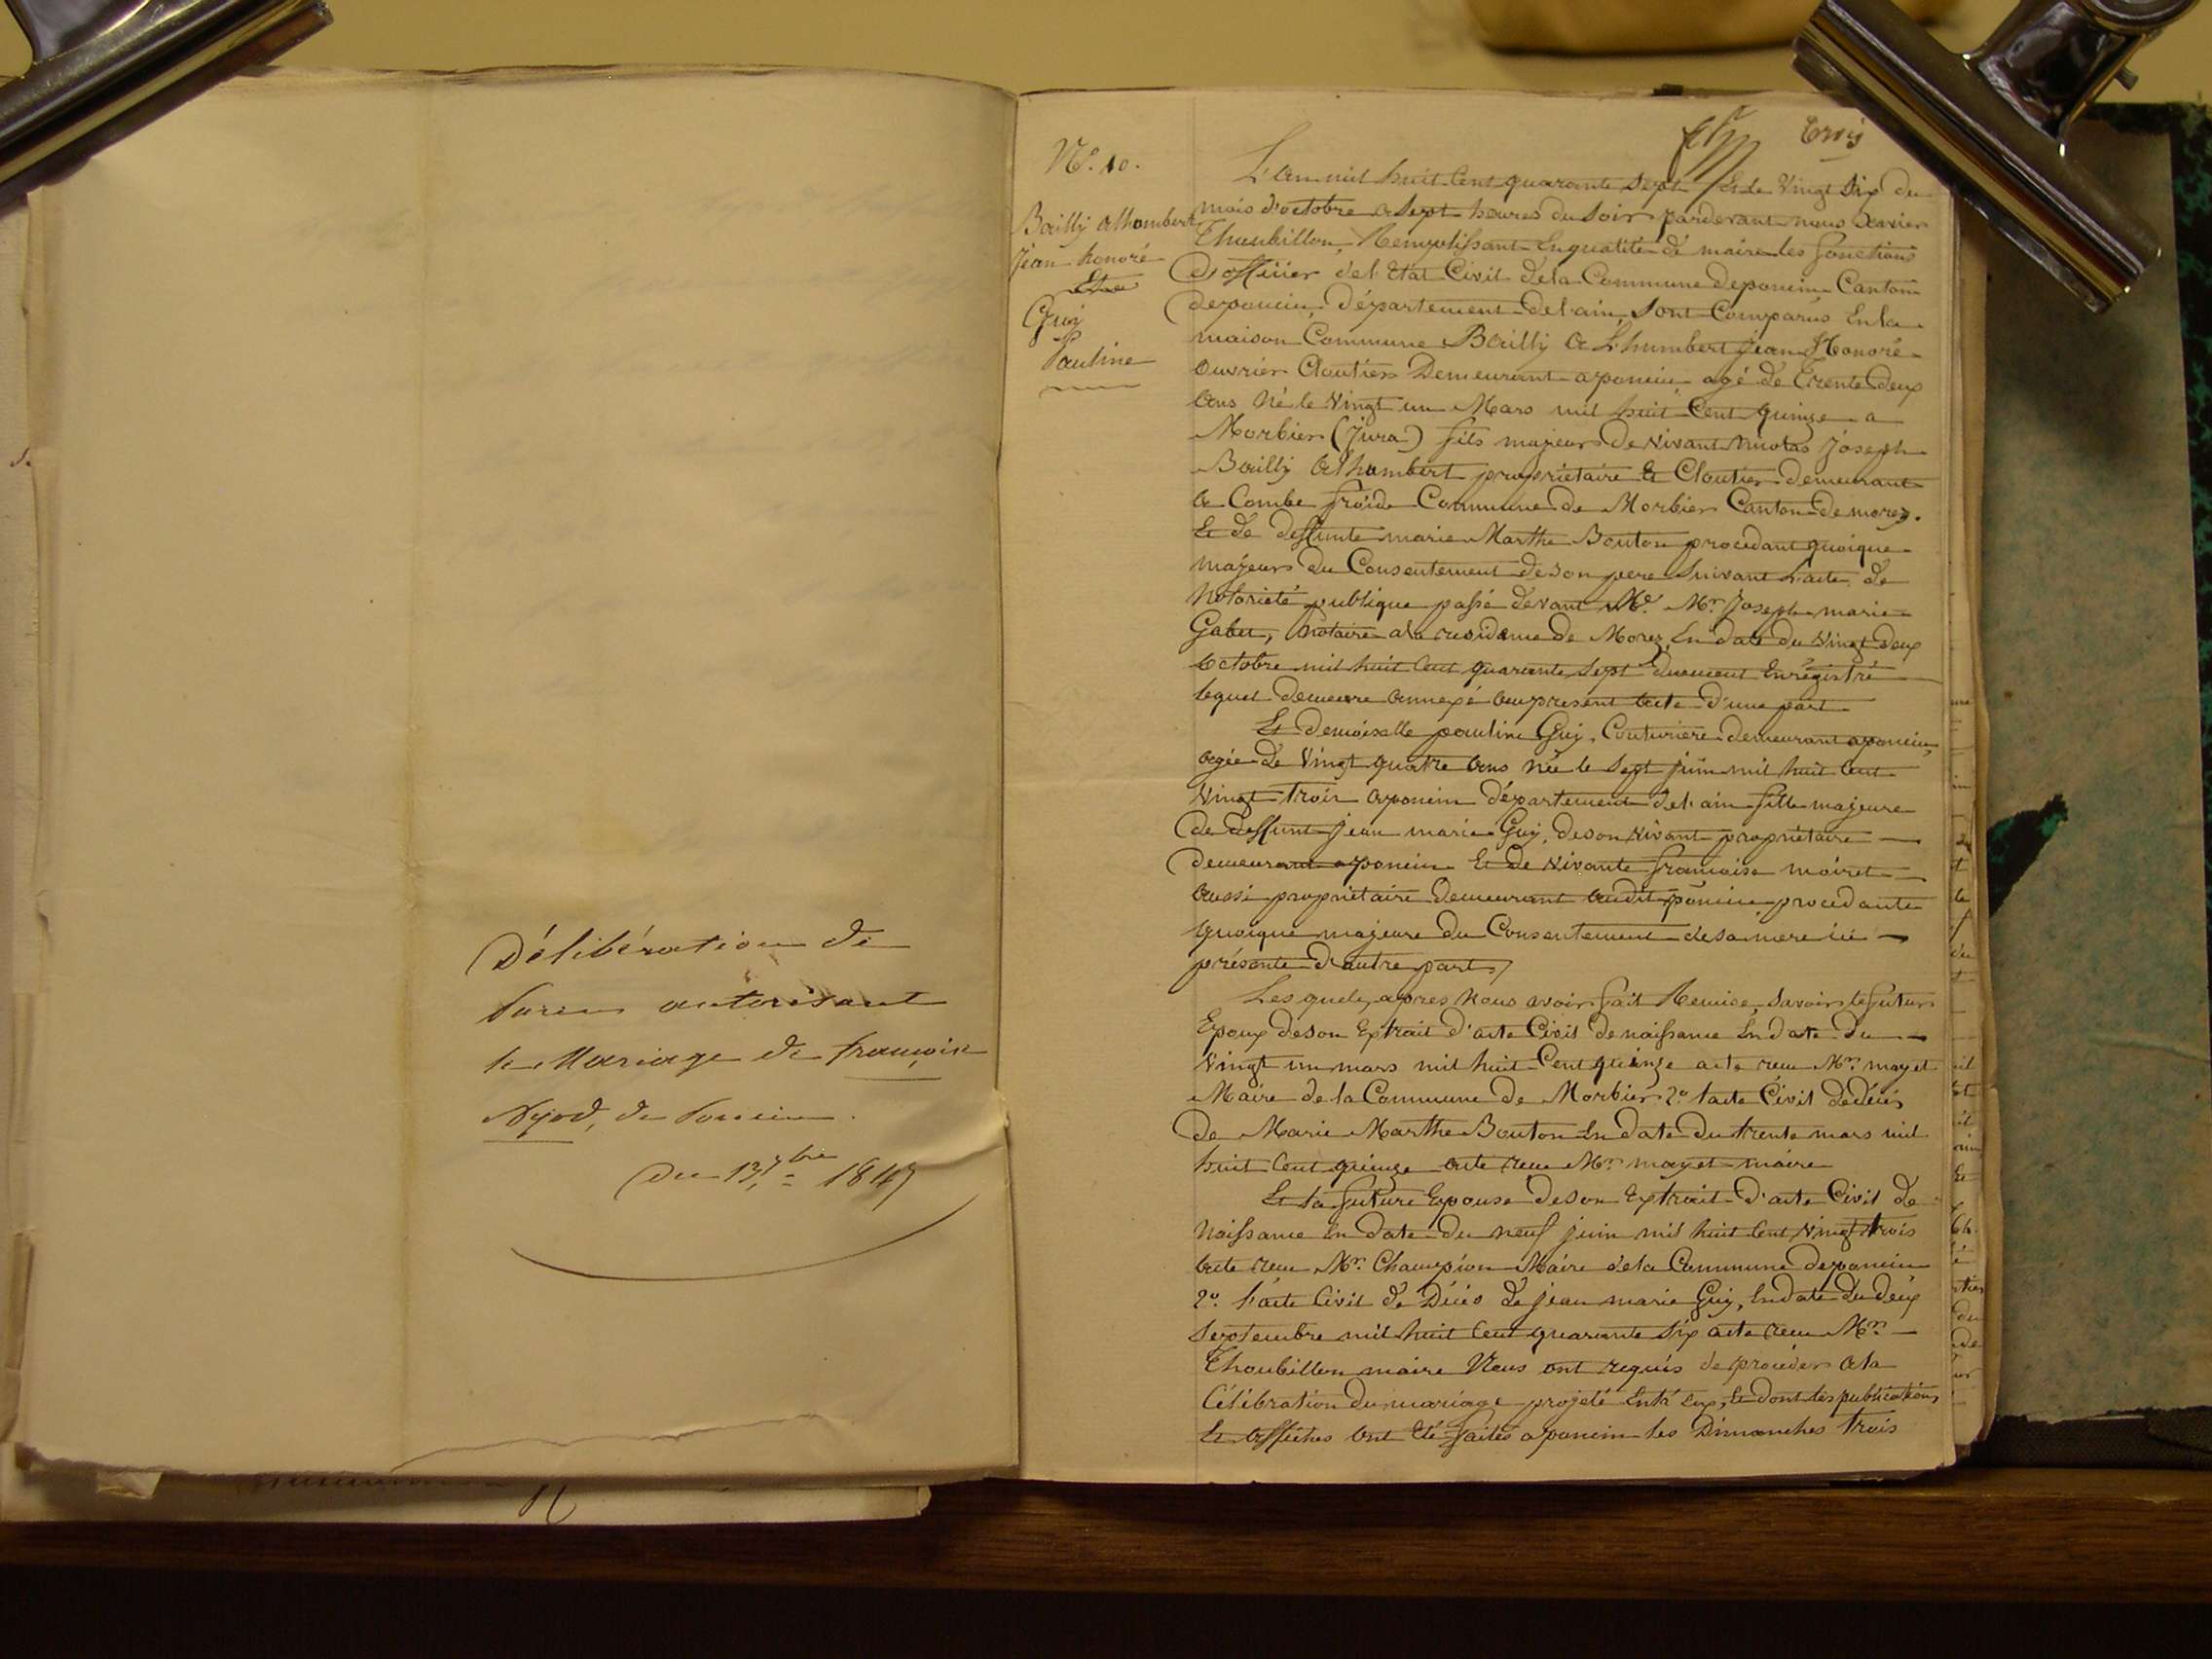 Délibération de
autorisant
le Mariage de françois
Nyod, de Poncin.
du 13 7bre 1847
Trois
N°. 10.
Bailly alhombert
Jean honoré
Et
Guy
Pauline
L'an mil huit Cent quarante Sept Et le Vingt Six du
mois d'octobre a Sept heures du Soir pardevant nous Xavier
Thoubillon, Remplissant En qualité de maire les fonctions
D'officier de l'Etat Civil de la Commune de poncin Canton
de poncin, Département de l'ain, Sont Comparus En la
maison Commune Bailly a L'humbert jean Honoré
Ouvrier Cloutier Demeurant a poncin agé de Trente Deux
Ans Né le Vingt un Mars mil huit Cent quinze a
Morbier (Jura) fils majeur De Vivant Nicolas Joseph
Bailly Al'hombert propriétaire Et Cloutier demeurant
a Combe froide Commune de Morbier Canton de morez.
Et de deffunte marie Marthe Bouton procédant quoique
majeur du Consentement de Son pere Suivant L'acte de
Notorieté publique passé devant Me. Mr. Joseph marie
Gabet, Notaire a la residence de Morez, En date du Vingt deux
octobre mil huit Cent quarante Sept duement Enrégistré
lequel demeure Annexé Au present Acte D'une part
Et demoiselle pauline Guy, Couturiere demeurant a poncin,
agée de Vingt quatre Ans née le Sept juin mil huit Cent
Vingt Trois a poncin département de l'ain fille majeure
de deffunt jean marie Guy, de son Vivant propriétaire
demeurant a poncin Et de Vivante francoise moiret
Aussi propriétaire demeurant Audit poncin, procédante
quoique majeure du Consentement de sa mere ici
présente d'autre part,/
Les quels, apres Nous avoir fait Remise, Savoir le futur
Epoux de son Extrait d'acte Civil de naissance En date du
Vingt un mars mil huit Cent quinze acte reçu Mr. mayet
Maire de la Commune de Morbier 2° l'acte Civil de décès
de Marie Marthe Bouton En date du trente mars mil
huit Cent quinze acte reçu Mr. mayet maire
Et la future Epouse de son Extrait d'acte Civil de
Naissance En date du neuf juin mil huit Cent Vingt trois
acte reçu Mr. Champion Maire de la Commune de poncin
2°. l'acte Civil de Décès de jean marie Guy, En date du deux
Septembre mil huit Cent quarante Six acte reçu Mr.
Thoubillon maire Nous ont requis de procéder a la
Célébration du mariage projeté Entr'Eux, Et dont les publications
Et affiches Ont Eté faites a poncin les Dimanches trois